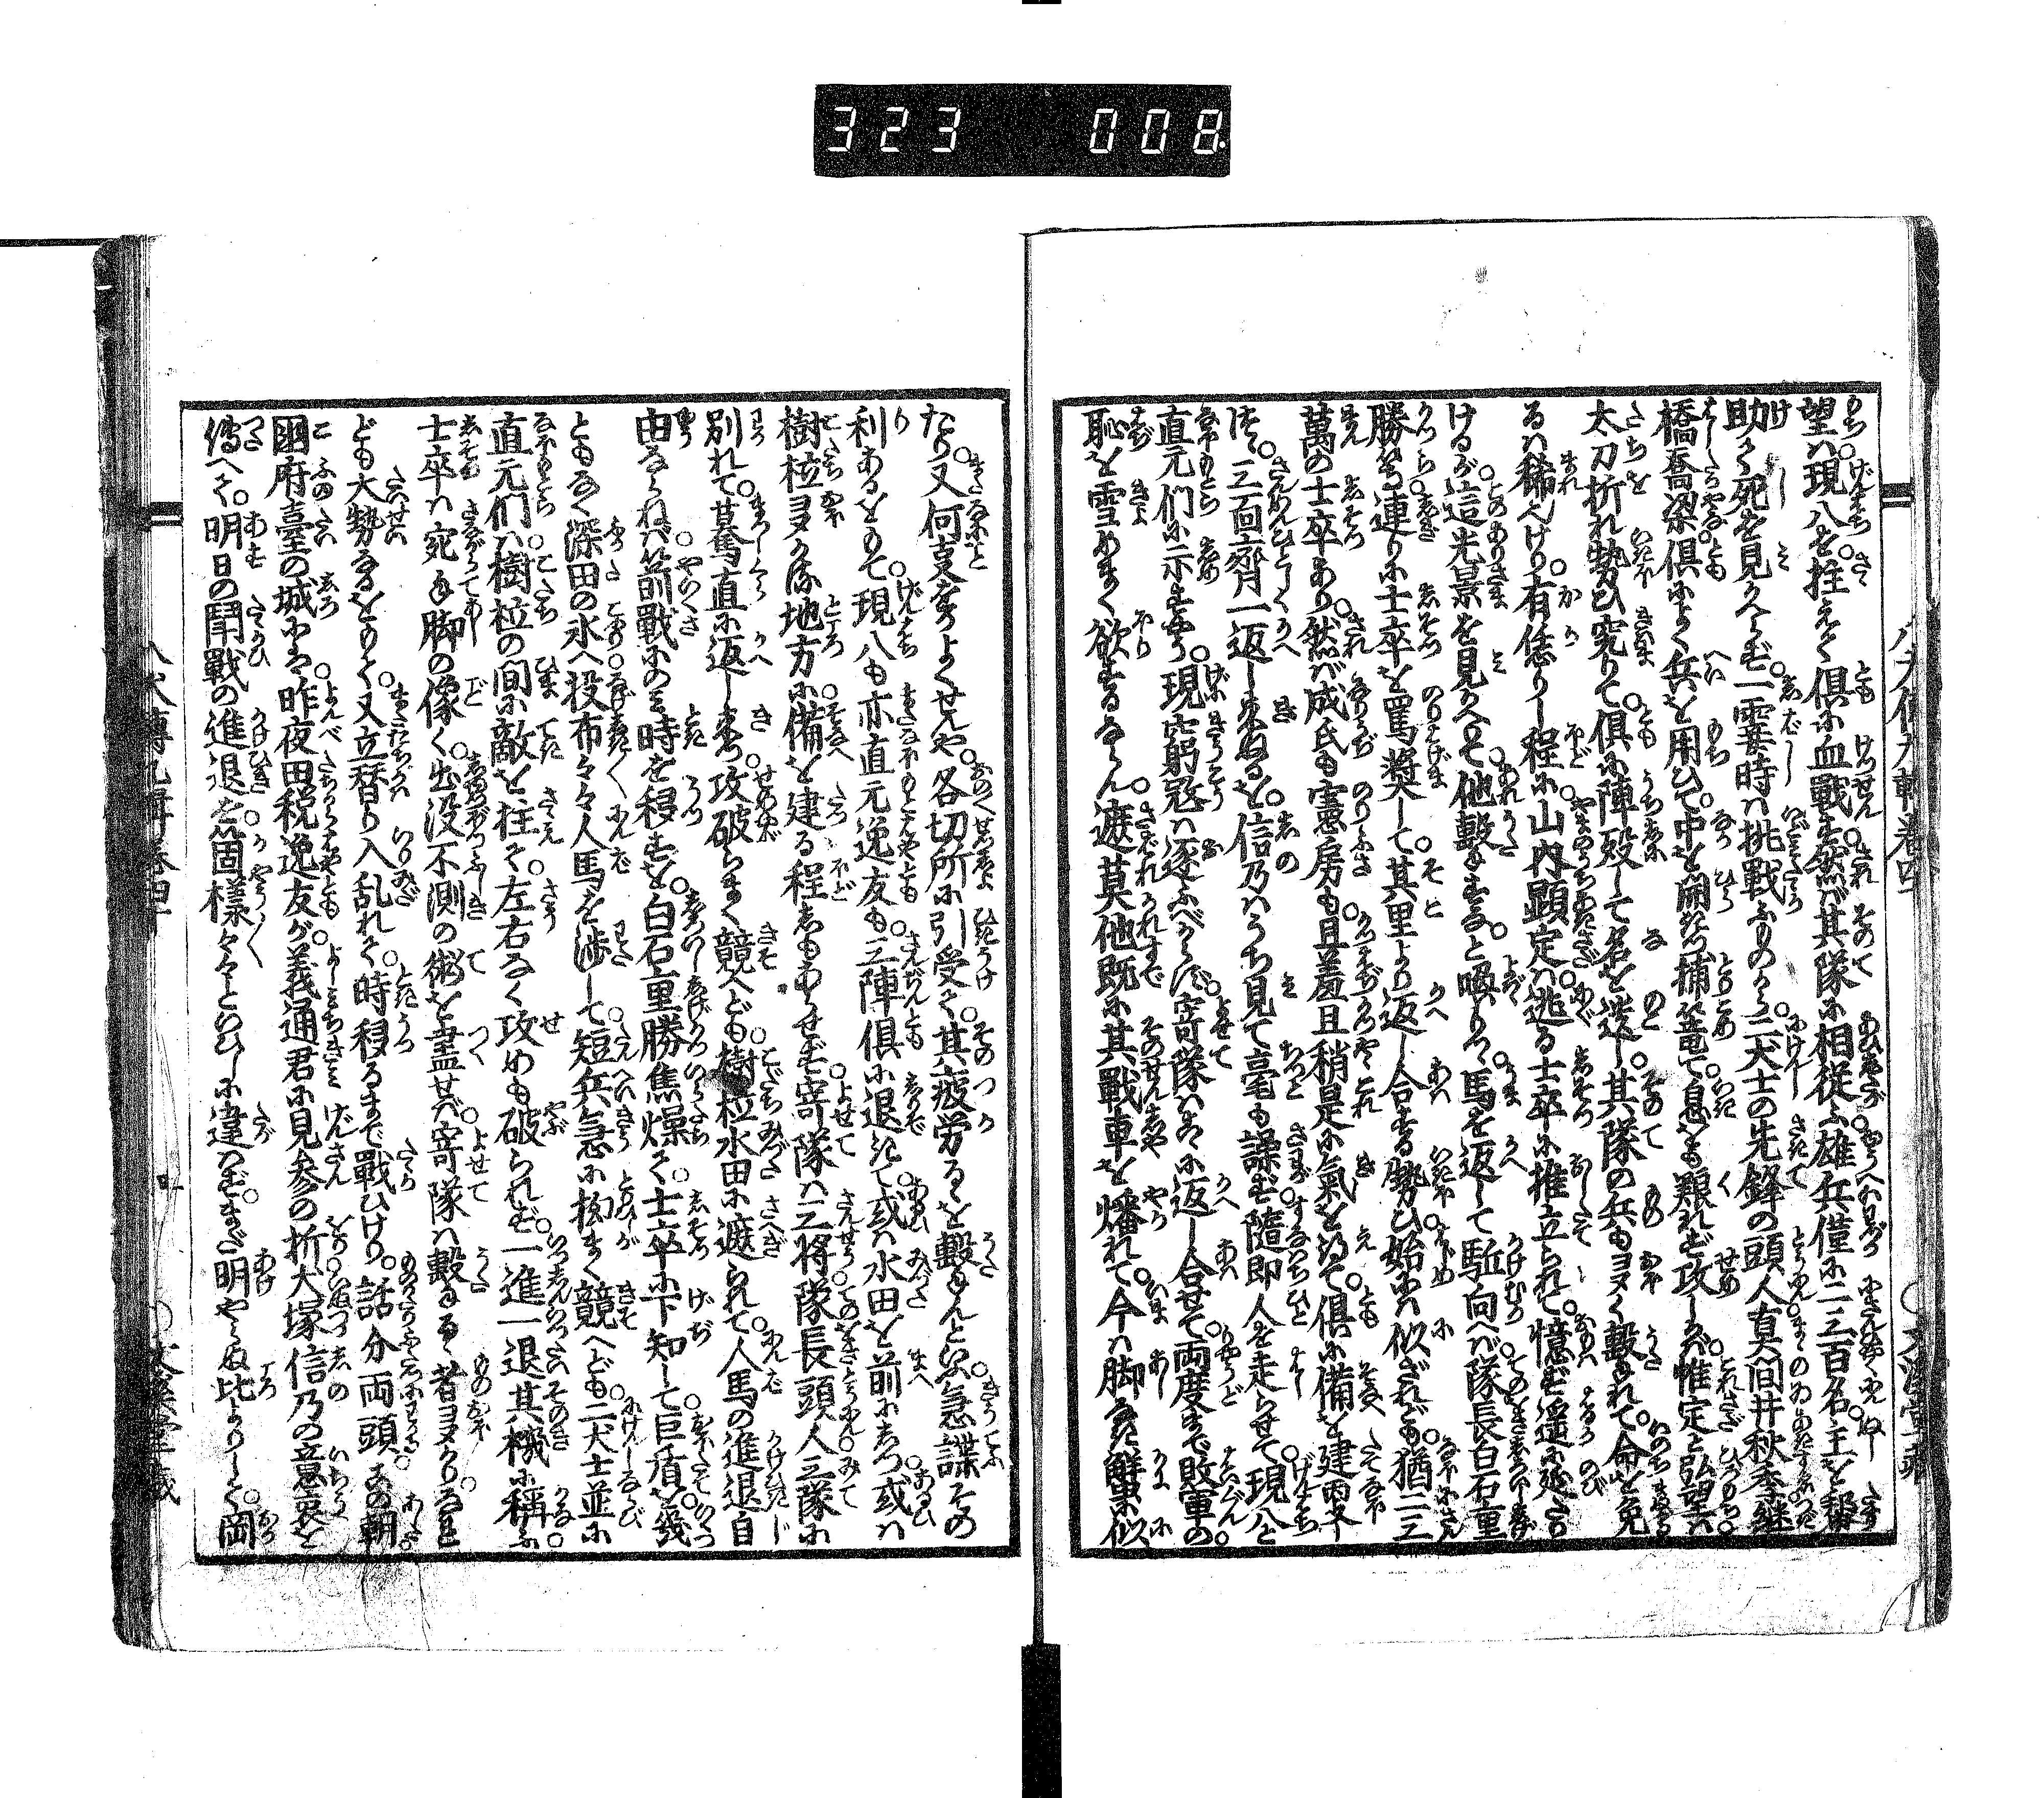 323 008
望は現八を拄えて倶に血戰す然ば其隊に相從ふ雄兵僅に二三百名主を幇
助て死を見かへらず一霎時は挑戰ふものから二犬士の先鋒の頭人真間井秋季継
橋喬梁倶によく兵を用ひて中を開きつ捕篭て息をも艱れず攻しかば惟定と弘望は
太刀折れ勢ひ究りて倶に陣歿して名を遺し其隊の兵もヨヌく撃れて命を免
るは稀也けり有恁りし程に山内顕定は逃る士卒に推立られて憶ず遥に延たり
けるが這光景を見かへりて他撃すなと喚りつ馬を返して駈向へば隊長白石重
勝等も連りに士卒を罵奨して其里より返し合する勢ひ始には似ざれども猶二三
萬の士卒あり然ば成氏も憲房も且羞且稍是に氣を得て倶に備を建直
しつゝ三面齊一返し来ぬるを信乃はうち見て毫も譟ず隨即人を走らせて現八と
直元们に示すやう現窮寇は逐ふべからず寄隊はこゝに返し合せて両度まで敗軍の
恥を雪めまく欲するならん遮莫他既に其戰車を燔れて今は脚なき蟹に似
たり又何事をかよくせんや各切所に引受て其疲労るゝを撃んといふ急諜その
利あるをもて現八も亦直元逸友も三陣倶に退きて或は水田を前にしつ或は
樹柆ヨヌかる地方に備を建る程しもあらせず寄隊は三将隊長頭人三隊に
別れて驀直に返し来つ攻破らまく競へども樹柆水田に遮られて人馬の進退自
由ならねば箭戰にのみ時を移すを白石重勝焦燥て士卒に下知して巨盾を幾
ともなく深田の水へ投布々々人馬を渉して短兵急に拗まく競へども二犬士並に
直元们は樹柆の間に敵を拄て左右なく攻めも破られず一進一退其機に稱ふ
士卒は宛手脚の像く出没不測の術を盡せば寄隊は撃るゝ者ヨヌかりしかど
ども大勢なるをもて又立替り入乱れて時移るまで戰ひけり話分両頭この朝
國府臺の城には昨夜田税逸友が義通君に見参の折犬塚信乃の意衷を
傳へて明日の鬪戰の進退を箇様々々といひしに違はずまだ明やらぬ比よりして岡